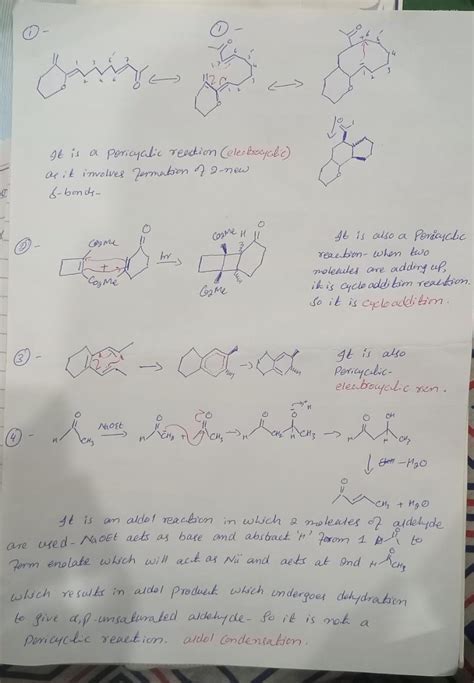 ① -
①-
It is a Pericyclic reaction (electrocyclic)
as it involves formation of 2-new
6-bonds-
② -
CO2Me
CO2Me
hν
CO2Me
CO2Me
H
O
It is also a Pericyclic
reaction- when two
molecules are adding up,
it is cycloaddition reaction.
So it is cycloaddition.
③ -
It is also
Pericyclic-
electrocyclic rxn.
④ -
NaOEt
-H2O
CH3 + H2O
It is an aldol reaction in which 2 molecules of aldehyde
are used- NaOEt acts as base and abstract 'H' from 1 to
form enolate which will act as and acts at 2nd
which results in aldol product which undergoes dehydration
to give α,β-unsaturated aldehyde- So it is not a
Pericyclic reaction. aldol condensation.